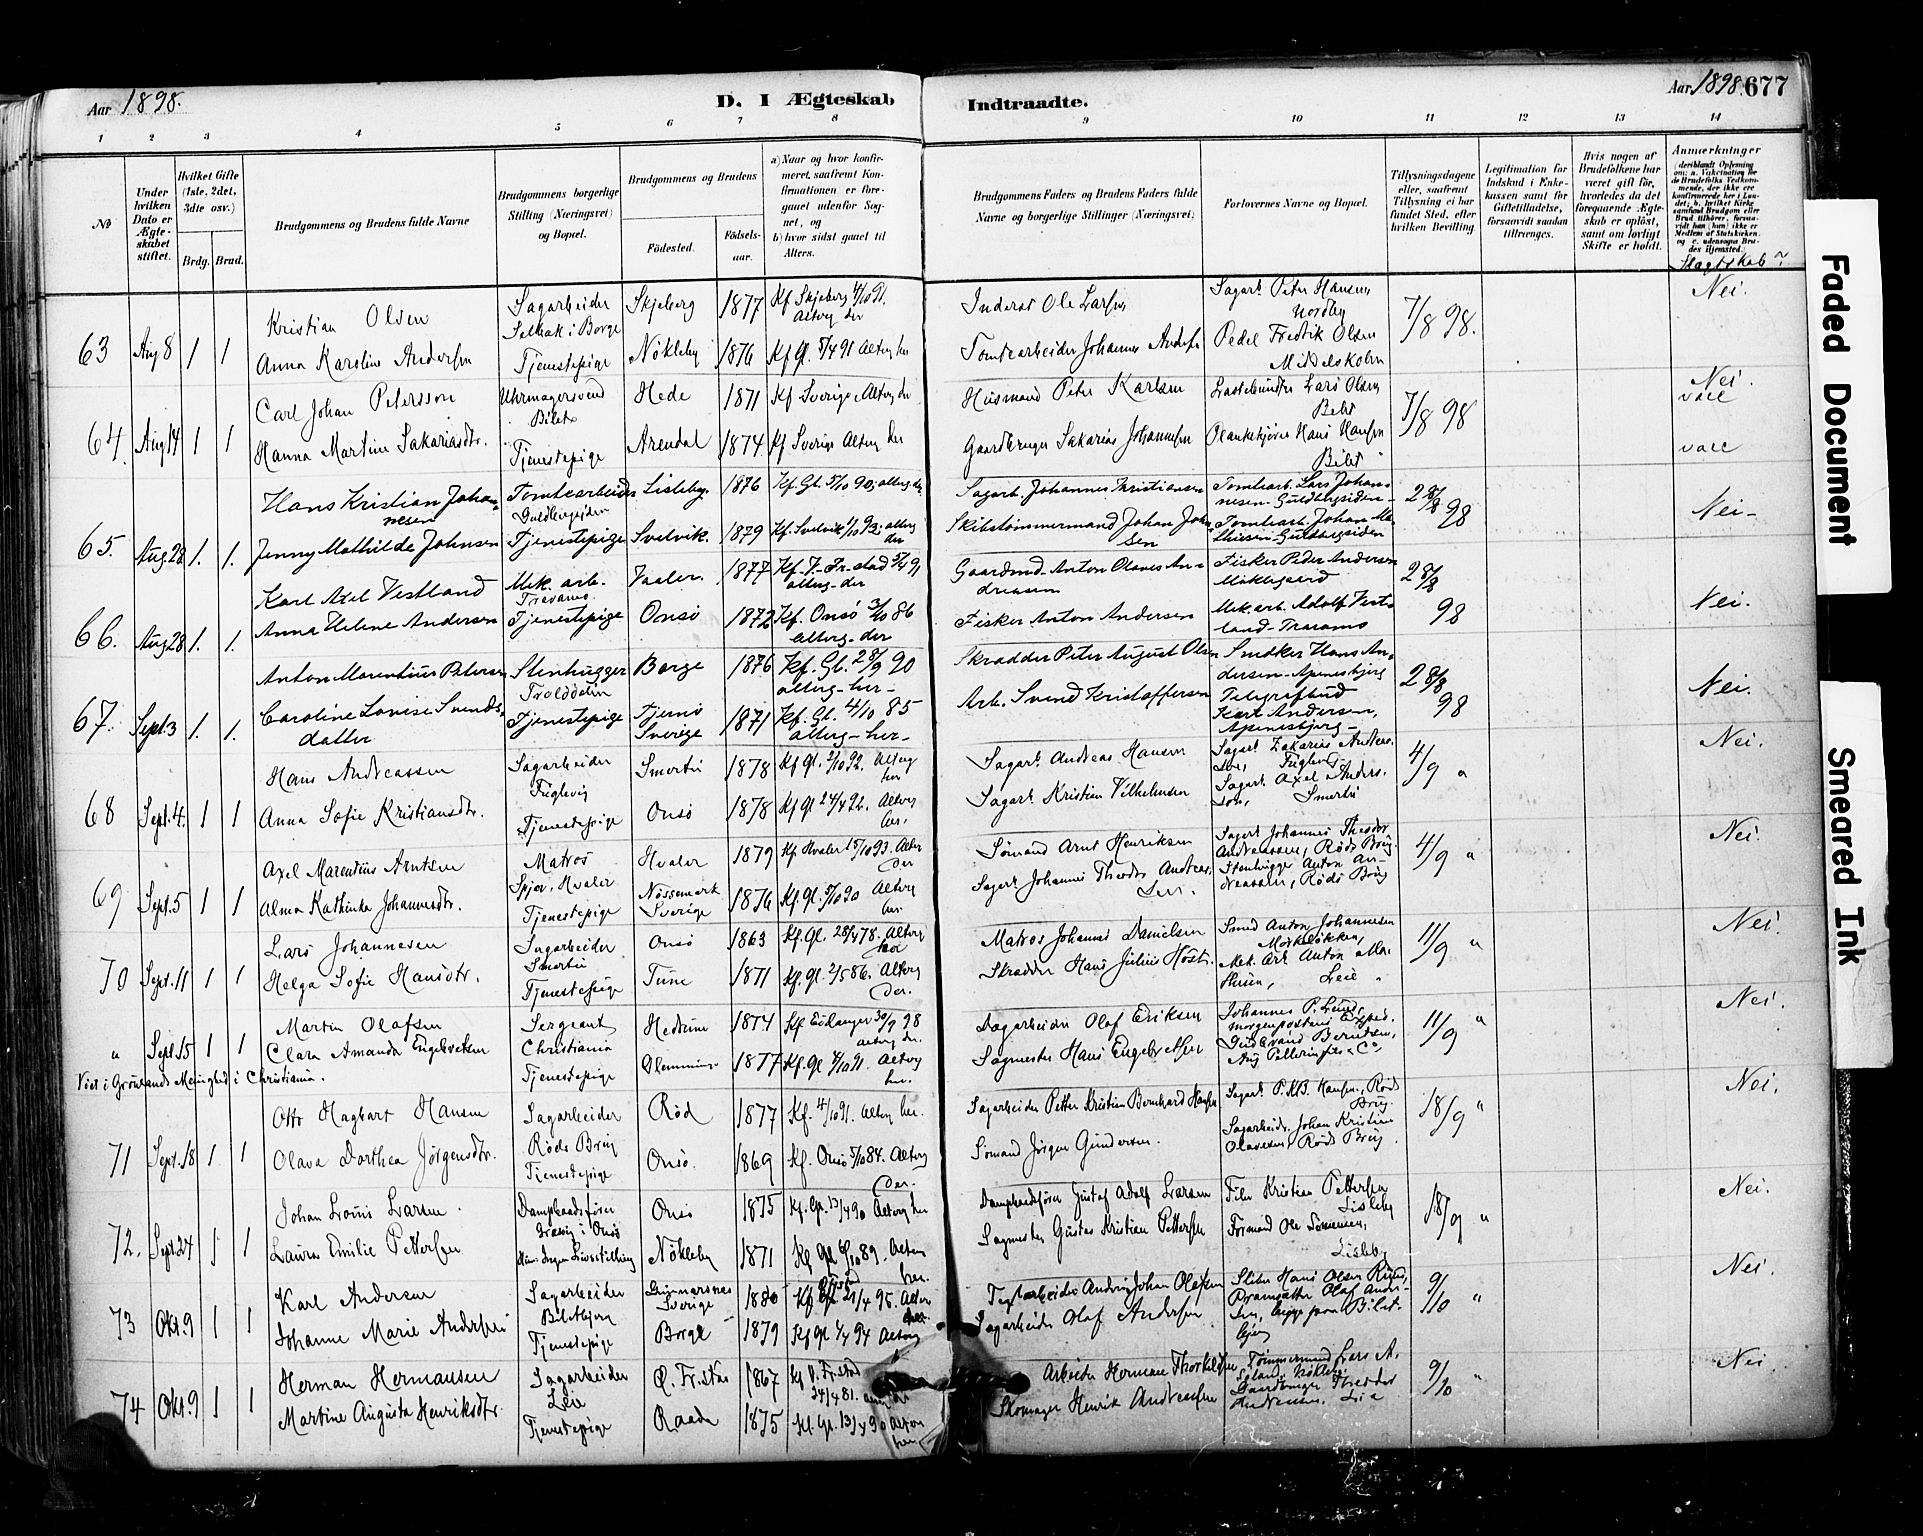 Aar 1898.
D. I Ægteskab
Indtraadte.
Aar 1898. 677
1 2 3 4 5 6 7 8 9 10 11 12 13 14
No
Under hvilken Dato er Ægteskabet stiftet.
Hvilket Gifte (1ste, 2det, 3dte osv.)
Brdg. Brud.
Brudgommens og Brudens fulde Navne
Brudgommens borgerlige Stilling (Næringsvei) og Bopæl.
Brudgommens og Brudens
Födested.
Födsels-aar.
a) Naar og hvor konfirmeret, saafremt Konfirmationen er foregaaet udenfor Sognet, og
b) hvor sidst gaaet til Alters.
Brudgommens Faders og Brudens Faders fulde Navne og borgerlige Stillinger (Næringsvei)
Forlovernes Navne og Bopæl.
Tillysningsdagene eller, saafremt Tillysning ei har fundet Sted, efter hvilken Bevilling
Legitimation for Indskud i Enkekassen samt for Giftetilladelse, forsaavidt saadan tiltrænges.
Hvis nogen af Brudefolkene har været gift för, hvorledes da det foregaaende Ægteskab er oplöst, samt om lovligt Skifte er holdt.
Anmærkninger
Slagtskab?
63 Aug 8 1 1
Kristian Olsen Sagarbeider Skjeberg 1877 Kf Skjeberg 4/10 91. Alterg der
Selbak i Borge
Anna Karoline Andersen Tjenestepige Nökleby 1876 Kf Gl. 5/4 91 Alterg her
Inderst Ole Larsen
Tomtearbeider Johannes Andersen
Sagarb Peter Hansen Nordby
Pedel Fredrik Olsen Middelskolen
7/8 98. Nei.
64. Aug 14 1 1
Carl Johan Petersson Uhrmagersvend Hede 1871 Kf Sverige, Alterg der
Bilet
Hanna Martine Sakariasdtr. Tjenestepige Arendal 1874 Kf Sverige Alterg her
Husmand Peter Karlsen
Gaardbruger Sakarias Johannesen
Lars Olsen Bilet
Plankekjörer Hans Hansen Bilet
7/8 98 Nei.
vacc
vacc
65. Aug. 28 1. 1.
Hans Kristian Johannesen Tomtearbeider Lisleby. 1876 Kf. Gl. 5/10 90; alterg. her
Guldbergsiden
Jenny Mathilde Johnsen Tjenestepige Svelvik. 1879 Kf. Svelvik 1/10 93. alterg der
Sagarb. Johannes Kristiansen
Skibstömmermand Johan Johnsen
Tomtearb. Lars Johannesen-Guldbergsiden-
Tomtearb. Johan Mathiesen-Guldbergsiden
28/8 98 Nei-
66. Aug 28 1. 1.
Karl Axel Vestland Mek. arb. Vaaler. 1877 Kf. V. Fr.stad 5/4 91 alterg-der
Anna Helene Andersen Tjenestepige Onsö 1872 Kf. Onsö 3/10 86 alterg-der
Gaardmd. Anton Olaves Andreasen
Fisker Anton Andersen
Fisker Peder Andersen Mikkelgaard
Mek. arb. Adolf Vestland-
28/8 98 Nei.
67. Sept. 3 1. 1.
Anton Marentius Petersen Stenhugger Borge 1876 Kf. Gl. 28/9 90 alterg-her-
Trolddalen
Caroline Lovise Svendsdatter Tjenestepige Tjernö Sverige 1871 Kf. Gl. 4/10 85 alterg-her-
Skrædder Peter August Olsen
Arb. Svend Kristoffersen
Snedker Hans Andersen-Apenesbjerg
Telegrafbud Karl Andersen, Apenesbjerg-
28/8 98 Nei.
68 Sept. 4. 1 1
Hans Andreassen Sagarbeider Smertu 1878 Kf Gl. 2/10 92. Alterg her
Fuglevig
Anna Sofie Kristiansdtr. Tjenestepige Onsö 1878 Kf Gl 24/4 92. Alterg her.
Sagarb. Andreas Hansen
Sagarb Kristian Vilhelmsen
Sagarb Zakarias Andreassen, Fuglevig
Sagarb Axel Andersson, Smertu
4/9 " Nei.
69 Sept. 5 1 1
Axel Marentius Arntsen Matros Hvaler 1879 Kf. Hvaler 15/10 93. Alter der
Spjær. Hvaler
Alma Kathinka Johannesdtr. Tjenestepige Nössemark Sverige 1876 Kf. Gl. 5/10 90 Alterg her.
Sömand Arnt Henriksen
Sagarb Johannes Theodor Andreassen.
Sagarb Johannes Theodor Andreassen, Röds Brug
Stenhugger Anton Andreassen, Röds Brug
4/9 " Nei
70 Sept. 11 1 1
Lars Johannesen Sagarbeider Onsö 1863 Kf. Gl. 28/4 78. Alterg her
Smertu
Helga Sofie Hansdtr. Tjenestepige Tune 1871 Kf. Gl. 2/5 86. Alterg der.
Matros Johannes Danielsen
Skrædder Hans Julius Höst.
Smed Anton Johannesen
Mek. Arb Anton Mathisen, Leie
11/9 " Nei.
" Sept. 15 1 1
Martin Olafsen Sergeant Hedrum 1874 Kf Eidanger 30/9 98 alterg der.
Christiania
Clara Amanda Engebretsen Tjenestepige Glemminge 1877 Kf. Gl 4/10 91. Alterg her.
Viet i Grönlands Menighed i Christiania.
Dagarbeider Olaf Eriksen
Sagmester Hans Engebretsen
Johannes P. Lund, Morgenpostens Exped.
Gulbrand Berntsen, Aug Pellerin fils & Co,
11/9 " Nei.
71 Sept. 18 1 1
Otto Hagbart Hansen Sagarbeider Röd 1877 Kf. 4/10 91. Alterg her.
Röds Brug
Olava Dorthea Jörgensdtr. Tjenestepige Onsö. 1869 Kf. Onsö 5/10 84. Alterg der.
Sagarbeider Petter Kristian Bernhard Hansen
Sömand Jörgen Gundersen.
Sagarb. P.K.B. Hansen, Röds Brug.
Sagarbeidr. Johan Kristian Olavesen, Röds Brug.
18/9 " Nei.
72. Sept. 24 1 1
Johan Louis Larsen Dampbaadsförer Onsö 1875 Kf. Gl. 13/4 90 Alterg her
i Onsö
Laura Emilie Pettersen Ingen Livsstilling Nökleby 1871 Kf. Gl 6/10 89. Alterg her.
Dampbaadförer Gustaf Adolf Larsen
Sagmester Gustav Kristian Pettersen
Filer Kristian Pettersen Lisleby
Formand Ole Simensen, Lisleby
18/9 " Nei.
73 Okt. 9 1 1
Karl Andersen Sagarbeider Sverige 1880 Kf 21/4 95. Alter her.
Biletbjerg
Johanne Marie Andersen Tjenestepige Borge 1879 Kf Gl 4/4 94 Alterg
Johan Olafsen
Sagarbeider Olaf Andersen
Sliber Hans Olsen
Olaf Andersen, begge paa Biletbjerg
9/10 " Nei.
74 Okt. 9 1 1
Herman Hermansen Sagarbeider Ø. Fr.stad 1867 Kf V. Fr.stad 24/4 81.
Leie
Martine Augusta Henriksdtr. Tjenestepige Raade 1875 Kf. Gl. 13/4 90 Alterg her
Arbeider Herman Thorkildsen
Skomager Henrik Andreassen
Tömmermand Lars A.
Gaardbruger Theodor Andreassen, Leie
9/10 " Nei
Faded Document
Smeared Ink